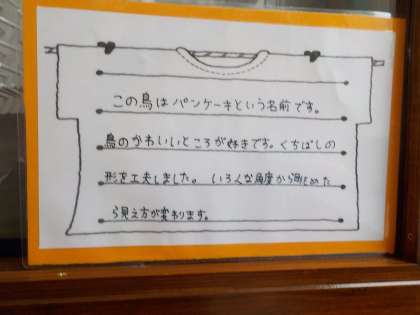 この鳥はパンケーキという名前です。
鳥のかわいいところが好きです。くちばしの
形を工夫しました。いろんな角度から眺めた
ら見え方が変わります。